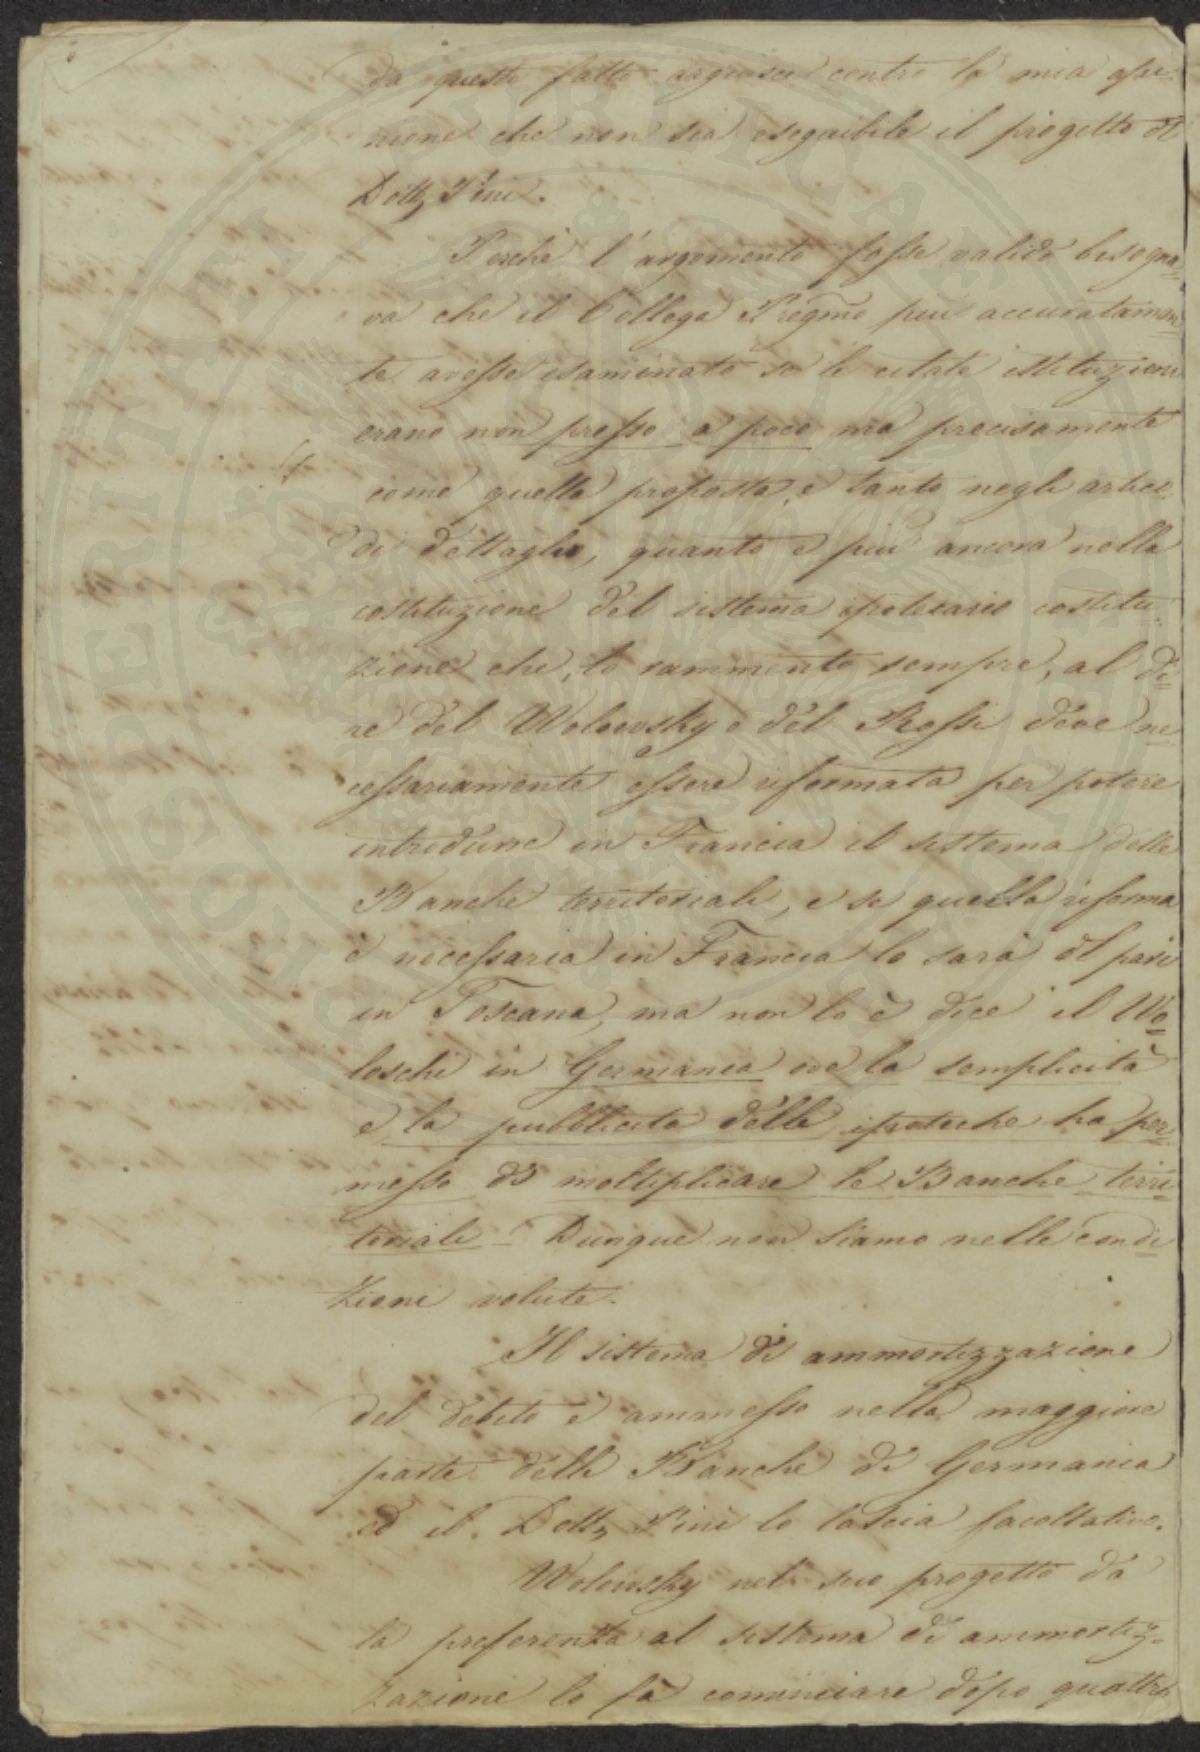 da questo fatto arguisce contro la mia opi-
nione che non sia eseguibile il progetto del
Dott. Pini.
Perchè l'argomento fosse valido bisogna-
va che il Collega Pregmo più accuratamen-
te avesse esaminato se le citate istituzioni
erano non presso a poco ma precisamente
come quella proposta, e tanto negli artico
di dettaglio, quanto e più ancora nella
costituzione del sistema ipotecario costitu-
zione che, lo rammento sempre, al di-
re del Wolowsky e del Rossi deve ne-
cessariamente essere riformata per potere
introdurre in Francia il sistema delle
Banche territoriali, e se quella riforma
è necessaria in Francia lo sarà del pari
in Toscana, ma non lo è dice il Wo-
loschi in Germania ove la semplicità
e la pubblicità delle ipoteche ha per-
messo di moltiplicare le Banche terri-
toriali - Dunque non siamo nelle condi-
zioni volute.
Il sistema di ammortizzazione
del debito è ammesso nella maggiore
parte delle Banche di Germania
ed il Dott. Pini lo lascia facoltativo.
Wolowsky nel suo progetto dà
la preferenza al sistema di ammortiz-
zazione lo fà cominciare dopo quattro
PROSPERITATI PUBLICAE AUGENDAE